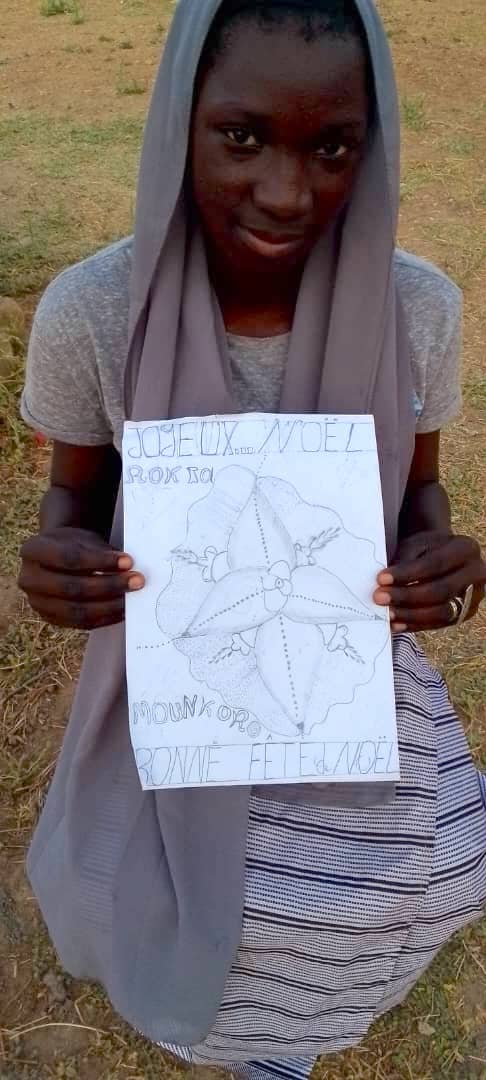 JOYEUX.... NOËL
ROKIA
MOUNKORO
BONNE FÊTE de NOËL